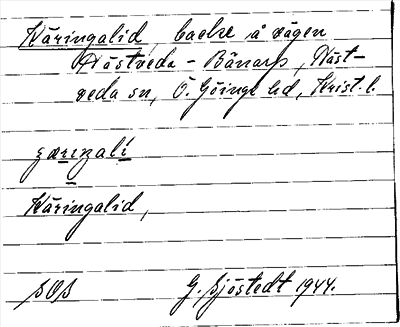 Käringalid, backe å vägen
Nästveda - Bänarp, Näst-
veda sn, Ö. Göinge hd, Krist. l.
Käringalid,
SOS G. Sjöstedt 1944.